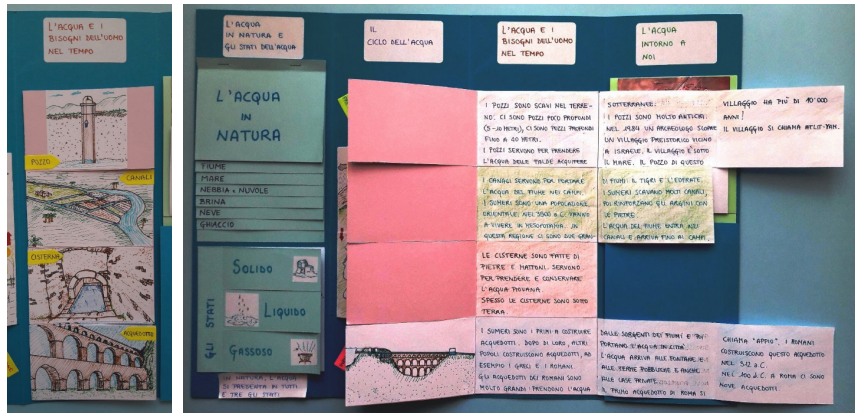 L'ACQUA E I
BISOGNI DELL'UOMO
NEL TEMPO
POZZO
CANALI
CISTERNA
ACQUEDOTTO
L'ACQUA
IN NATURA E
GLI STATI DELL'ACQUA
IL
CICLO DELL'ACQUA
L'ACQUA E I
BISOGNI DELL'UOMO
NEL TEMPO
L'ACQUA
INTORNO A
NOI
L'ACQUA
IN
NATURA
FIUME
MARE
NEBBIA e NUVOLE
BRINA
NEVE
GHIACCIO
GLI STATI
SOLIDO
LIQUIDO
GASSOSO
IN NATURA, L'ACQUA
SI PRESENTA IN TUTTI
E TRE GLI STATI
I POZZI SONO SCAVI NEL TERRE-
NO. CI SONO POZZI POCO PROFONDI
(5-10 METRI), CI SONO POZZI PROFONDI
FINO A 20 METRI.
I POZZI SERVONO PER PRENDERE
L'ACQUA DELLE FALDE ACQUIFERE
SOTTERRANEE.
I POZZI SONO MOLTO ANTICHI.
NEL 1984 UN ARCHEOLOGO SCOPRE
UN VILLAGGIO PREISTORICO VICINO
A ISRAELE. IL VILLAGGIO È SOTTO
IL MARE. IL POZZO DI QUESTO
VILLAGGIO HA PIÙ DI 10'000
ANNI!
IL VILLAGGIO SI CHIAMA ATLIT-YAM.
I CANALI SERVONO PER PORTARE
L'ACQUA DEL FIUME NEI CAMPI.
I SUMERI SONO UNA POPOLAZIONE
ORIENTALE: NEL 3500 a.C. VANNO
A VIVERE IN MESOPOTAMIA. IN
QUESTA REGIONE CI SONO DUE GRAN-
DI FIUMI: IL TIGRI E L'EUFRATE.
I SUMERI SCAVANO MOLTI CANALI,
POI RINFORZANO GLI ARGINI CON
LE PIETRE.
L'ACQUA DEL FIUME ENTRA NEI
CANALI E ARRIVA FINO AI CAMPI.
LE CISTERNE SONO FATTE DI
PIETRE E MATTONI. SERVONO
PER PRENDERE E CONSERVARE
L'ACQUA PIOVANA.
SPESSO LE CISTERNE SONO SOTTO
TERRA.
I SUMERI SONO I PRIMI A COSTRUIRE
ACQUEDOTTI. DOPO DI LORO, ALTRI
POPOLI COSTRUISCONO ACQUEDOTTI, AD
ESEMPIO I GRECI E I ROMANI.
GLI ACQUEDOTTI DEI ROMANI SONO
MOLTO GRANDI: PRENDONO L'ACQUA
DALLE SORGENTI DEI FIUMI E POI
PORTANO L'ACQUA IN CITTÀ.
L'ACQUA ARRIVA ALLE FONTANE E
ALLE TERME PUBBLICHE E ANCHE
ALLE CASE PRIVATE.
IL PRIMO ACQUEDOTTO DI ROMA SI
CHIAMA "APPIO". I ROMANI
COSTRUISCONO QUESTO ACQUEDOTTO
NEL 312 a.C.
NEL 300 d.C. A ROMA CI SONO
NOVE ACQUEDOTTI.